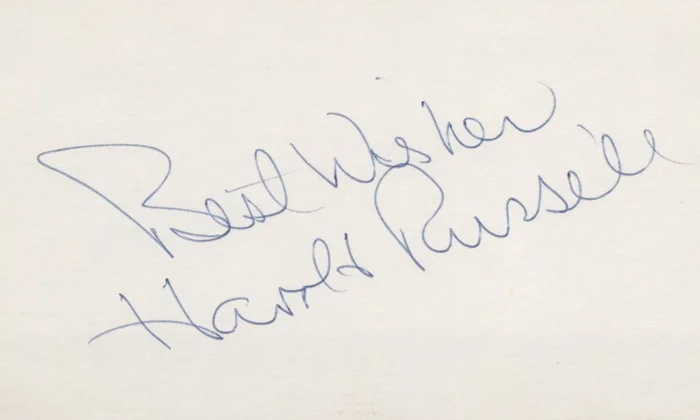 Best Wishes
Harold Russell